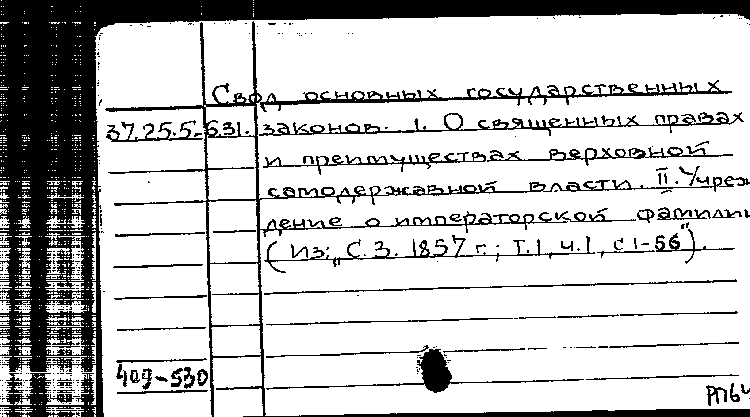 Свод основных государственных
37.25.5.531. законов. 1. О священных правах
и преимуществах верховной
самодержавной власти. II. Учреж
дение о императорской фамилии
(Из: „С.З. 1857 г.; Т.1, ч.1, с 1-56").
409-530